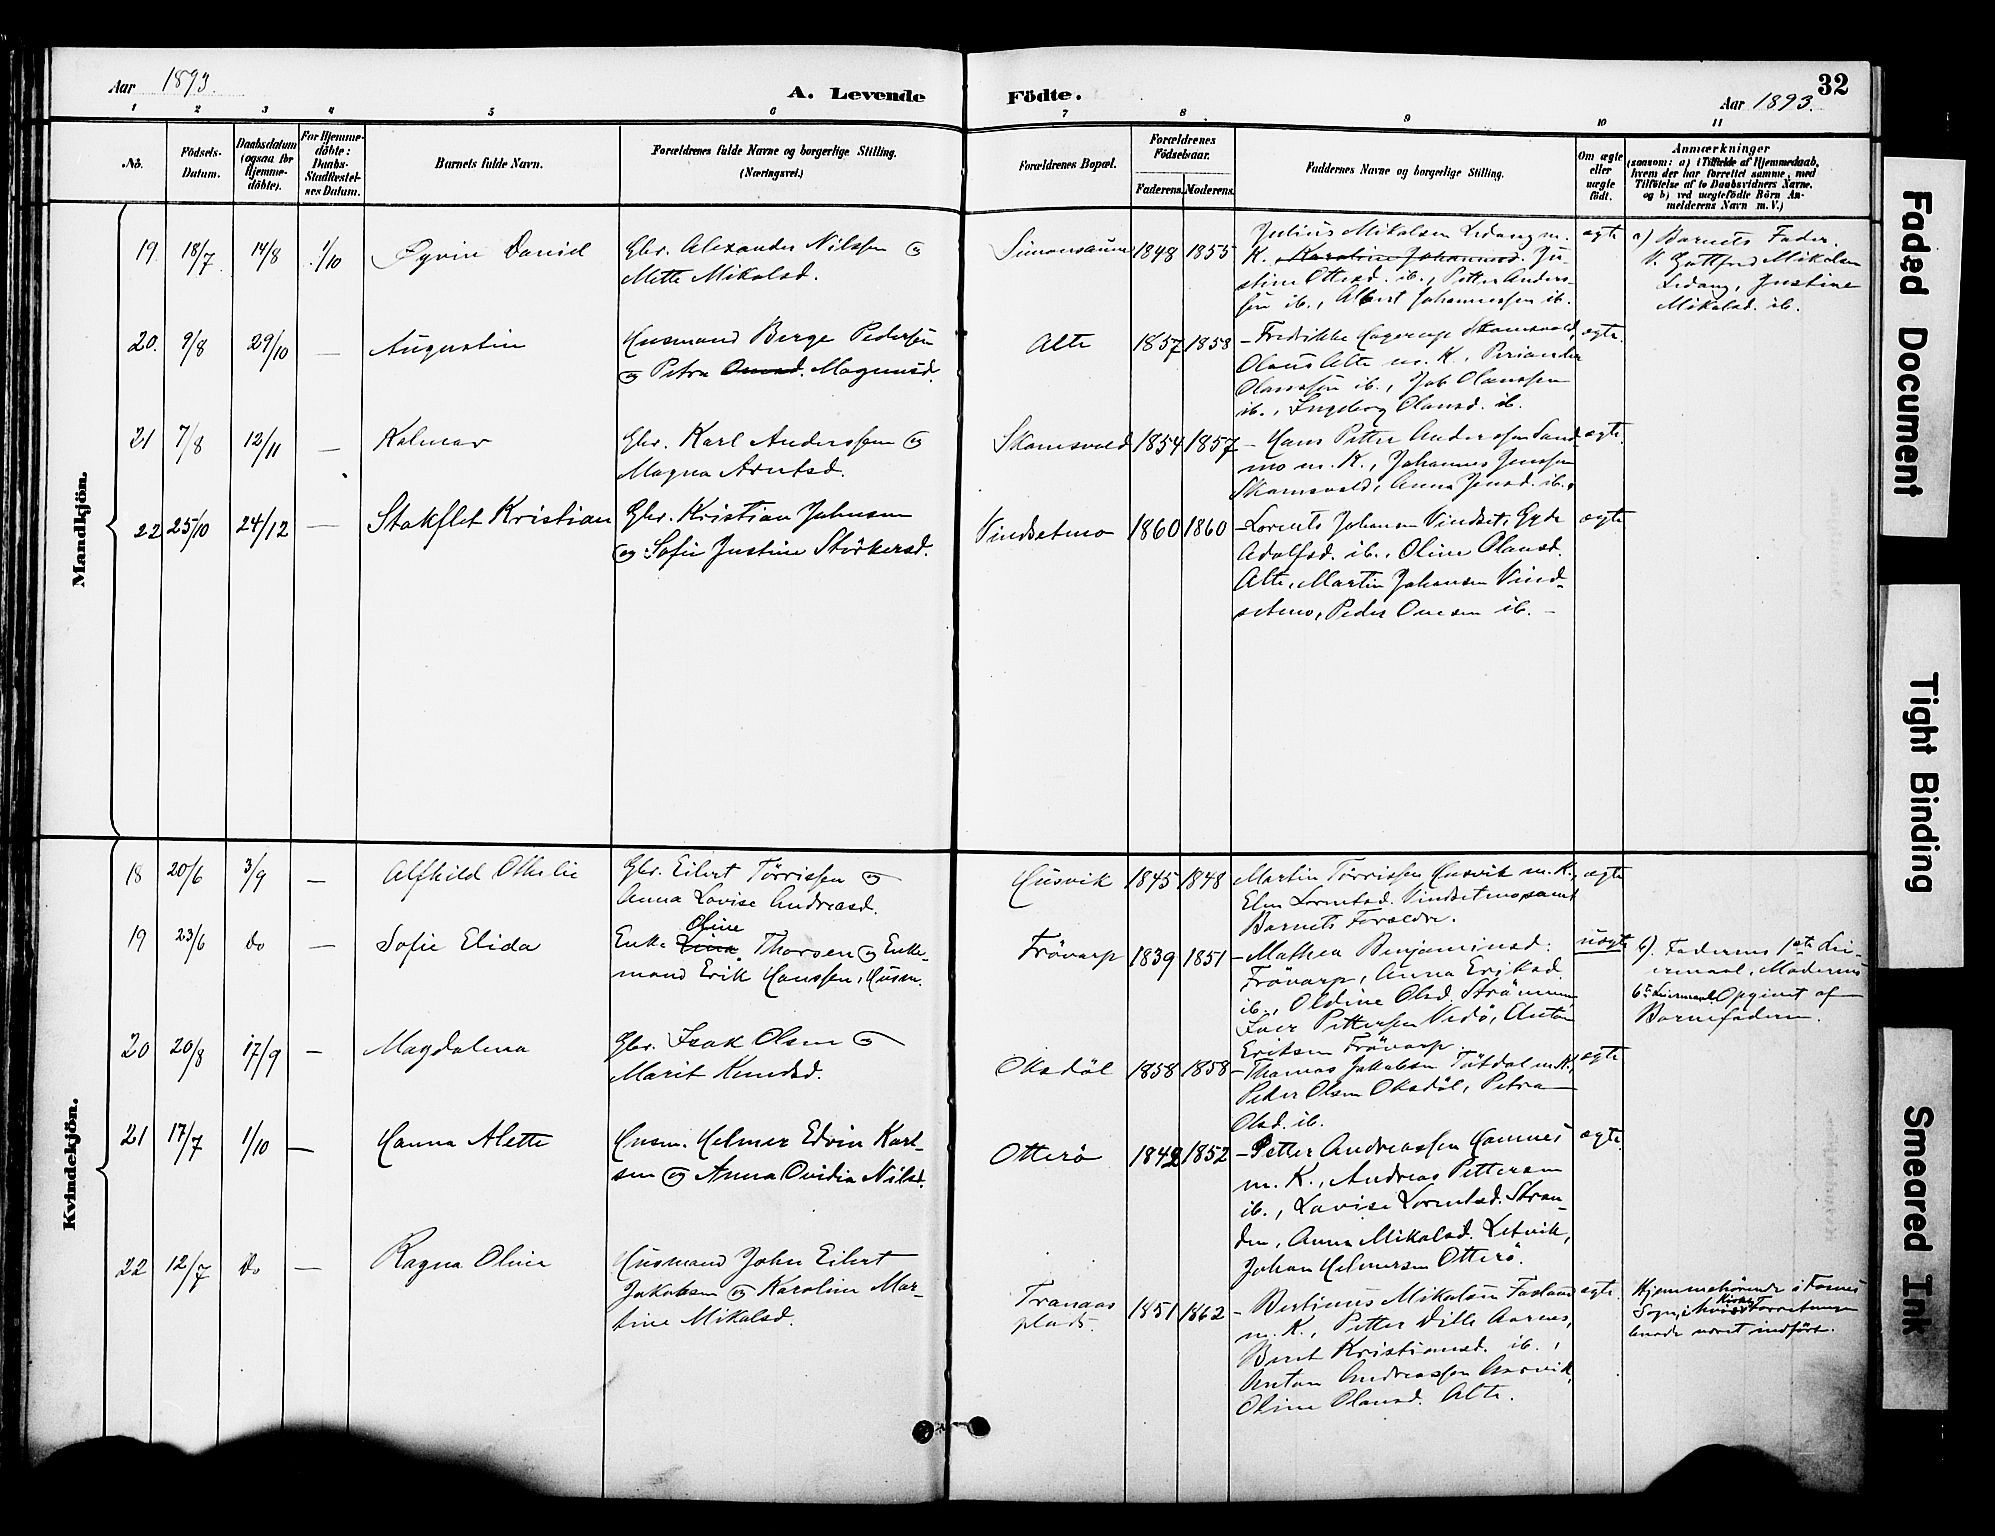 Aar 1893.
A. Levende
Födte.
32
Aar 1893.
1 2 3 4 5 6 7 8 9 10 11
No.
Födsels-
Datum.
Daabsdatum
(ogsaa for
Hjemme-
döbte).
For Hjemme-
döbte:
Daabs-
Stadfestel-
nes Datum.
Barnets fulde Navn.
Forældrenes fulde Navne og borgerlige Stilling.
(Næringsvei.)
Forældrenes Bopæl.
Forældrenes
Födselsaar.
Faderens. Moderens.
Faddernes Navne og borgerlige Stilling.
Om ægte
eller
uægte
födt.
Anmærkninger
(saasom: a) i Tilfælde af Hjemmedaab,
hvem der har forrettet samme, med
Tilföielse af to Daabsvidners Navne,
og b) ved uægtefödte Börn An-
melderens Navn m. V.)
Mandkjön.
19. 18/7 14/8 1/10 Øyvin Daniel
Gbr. Alexander Nilssen og
Mette Mikalsd.
1848 1855
Julius Mikalsen Ledang m.
K. Karoline Johannesd. Ju-
stine Ottesd. ib., Petter Anders-
sen ib., Albert Johannessen ib.
ægte
a) Barnets Fader.
V. Gottfred Mikalsen
Ledang, Justine
Mikalsd. ib.
20. 9/8 29/10 — Augustin
Husmand Berge Pedersen
og Petra Magnusd.
Alte 1857 1858
- Fredrikke Skamsvold,
Olaus Alte m. K.,
Olaussen ib., Job Olaussen
ib., Ingeborg Olausd. ib.
ægte.
21 7/8 12/11 — Kalmar
Gbr. Karl Anderssen og
Magna Arntsd.
Skamsvold 1854 1857
- Hans Petter Anderssen Sand-
mo m. K., Johannes Jenssen
Skamsvold, Anna Jensd. ib.
ægte.
22 25/10 24/12 — Stakflet Kristian
Gbr. Kristian Johnsen
og Sofie Justine Störkersd.
Vindsetmo 1860 1860
- Lorents Johansen Vindset,
Adolfsd. ib., Oline Olausd.
Alte, Martin Johansen Vind-
setmo, Peder Onesen ib. -
ægte
Kvindekjön.
18 20/6 3/9 — Alfhild Othelie
Gbr. Eilert Törrissen og
Anna Lovise Andreasd.
Husvik 1845 1848
Martin Törrissen Husvik m. K.,
Elen Lorntsd. Vindsetmo samt
Barnets Forældre.
ægte
19 23/6 do — Sofie Elida
Oline
Enke Lina Thorsen og Enke-
mand Erik Hanssen, Husm.
Frövarp 1839 1851
- Mathea Benjaminsd.
Frövarp, Anna Eriksd.
ib., Oldine Olsd. Strömmen,
Iver Pettersen Vedö, Anton
Eriksen Frövarp.
uægte
b). Faderens 1ste Lei-
ermaal, Moderens
6te Leiermaal. Opgivet af
Barnefaderen.
20 20/8 17/9 — Magdalena
Gbr. Isak Olsen og
Marit Knudsd.
Oksdöl 1858 1858
- Thomas Jakobsen Tötdal m. K.,
Peder Olsen Oksdöl, Petra
Olsd. ib.
ægte
21 17/7 1/10 — Hanna Alette
Husm. Helmer Edvin Karl-
sen og Anna Ovidia Nilsd.
Otterö 1842 1852
- Petter Andreassen Hamnes
m. K., Andreas Pettersen
ib., Lovise Lorntsd. Stran-
den, Anna Mikalsd. Letvik,
Johan Helmersen Otterö.
ægte.
22 12/7 do — Ragna Olina
Husmand John Eilert
Jakobsen og Karoline Mar-
tine Mikalsd.
Tranaas
plads. 1851 1862
- Bertinus Mikalsen Fosland
m. K., Petter Dille Aarnes,
Berit Kristiansd. ib.,
Anton Andreassen Aarvik,
Oline Olausd. Alte.
ægte
Hjemmehörende i Fosnes
Sogn, i hvis Kirke Forretningen
burde været indfört.
Faded Document
Tight Binding
Smeared Ink